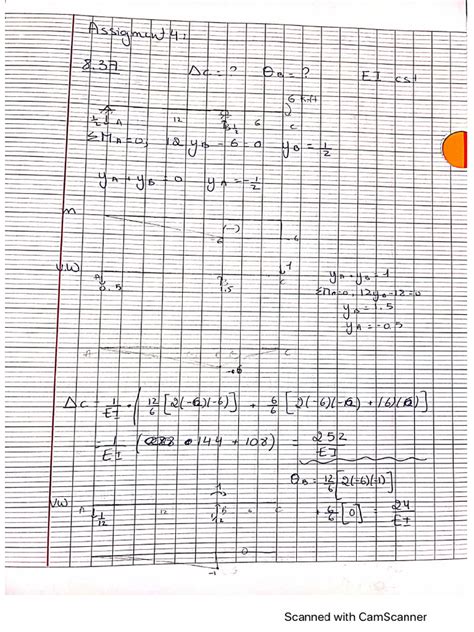 Assigment 4:
8.37 Δc = ? θB = ? EI cst
6 k.ft
1/2 A 12 B 1/2 6 C
ΣMA = 0, 12 yB - 6 = 0 yB = 1/2
yA + yB = 0 yA = -1/2
m
(-)
-6 -6
V.W A 1
0.5 1.5 C
yA + yB = 1
ΣMA = 0, 12yB - 18 = 0
yB = 1.5
yA = -0.5
A C
-6
Δc = 1/EI · ( 12/6 [2(-6)(-6)] + 6/6 [2(-6)(-6) + (6)(6)]
= 1/EI ( 144 + 108) = 252/EI
θB = 12/6 [2(-6)(-1)]
+ 6/6 [0] = 24/EI
V.W A 1/12 12 1/12 B 6 C
0
-1
Scanned with CamScanner